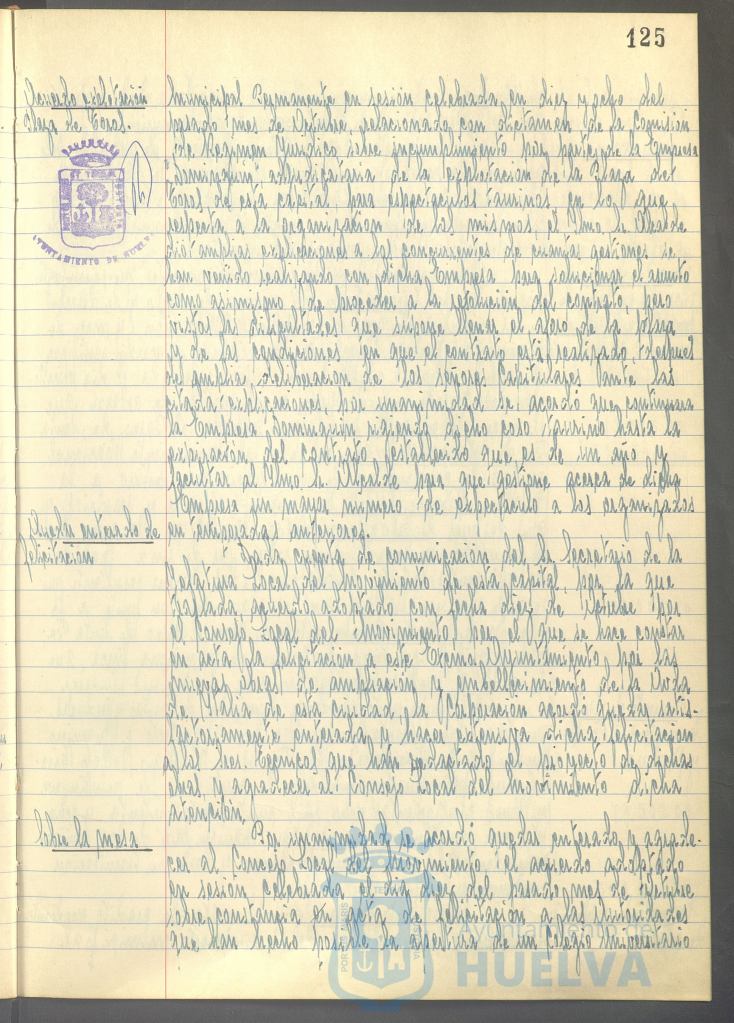 125
Acuerdo explotación
Plaza de Toros.
Municipal Permanente en sesión celebrada en diez y ocho del
pasado mes de Octubre, relacionado con dictamen de la Comisión
de Regimen Juridico sobre incumplimiento por parte de la Empresa
"Dominguin" adjudicataria de la explotación de la Plaza de
Toros de esta capital para espectaculos taurinos en lo que
respecta a la organización de los mismos, el Ilmo. Sr. Alcalde
dió amplias explicaciones a los concurrentes de cuantas gestiones se
han venido realizando con dicha Empresa para solucionar el asunto
como asimismo de proceder a la resolución del contrato, pero
vistas las dificultades que supone llenar el aforo de la plaza
y de las condiciones en que el contrato está realizado, despues
de amplia deliberación de los señores Capitulares ante las
citada explicaciones, por unanimidad se acordó que continuara
la Empresa Dominguin rigiendo dicho coso taurino hasta la
expiración del contrato establecido que es de un año y
facultar al Ilmo. Sr. Alcalde para que gestione acerca de dicha
Empresa un mayor numero de espectaculo a los organizados
en temporadas anteriores.
AYUNTAMIENTO DE HUELVA
Queda enterado de
felicitacion
Dada cuenta de comunicación del Sr. Secretario de la
Jefatura Local del Movimiento de esta capital, por la que
traslada acuerdo adoptado con fecha diez de Octubre por
el Consejo Local del Movimiento por el que se hace constar
en acta la felicitación a este Excmo. Ayuntamiento por las
nuevas obras de ampliación y embellecimiento de la Avda
de Italia de esta ciudad, la Corporacion acordó quedar satis-
factoriamente enterada y hacer extensiva dicha felicitacion
a los Sres. Tecnicos que han redactado el proyecto de dichas
obras, y agradecer al Consejo Local del Movimiento dicha
atención.
Sobre la mesa
Por unanimidad se acordó quedar enterado y agrade-
cer al Consejo Local del Movimiento el acuerdo adoptado
en sesión celebrada el dia diez del pasado mes de Octubre
sobre constancia en acta de felicitacion a las Autoridades
que han hecho posible la apertura de un Colegio Universitario
Ayuntamiento de
HUELVA